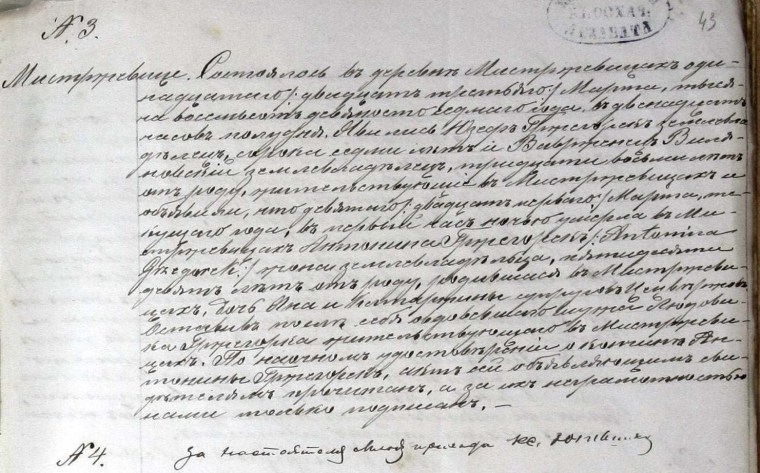 N. 3.
45
Мистржевице. Состоялось въ деревнѣ Мистржевицахъ оди-
надцатаго /: двадцать третьяго :/ Марта, тысяча
восемьсотъ девяносто седьмаго года, въ двѣнадцать
часовъ полудня. Явились Юзефъ Гржегорекъ землевла-
дѣлецъ, сорока семи лѣтъ и Вавржинецъ
землевладѣлецъ, тридцати восьми лѣтъ
отъ роду, жительствующіе въ Мистржевицахъ и
объявили, что девятаго /: двадцать перваго :/ Марта, те-
кущаго года, въ первый часъ ночью умерла въ Ми-
стржевицахъ Антонина Гржегорекъ /: Antonina
:/ жена землевладѣльца, пятидесяти
девять лѣтъ отъ роду, родившаяся въ Мистржеви-
цахъ, дочь Яна и Катаржины супруговъ
Оставивъ послѣ себя овдовѣвшаго мужа Людови-
ка Гржегорка жительствующаго въ Мистржеви-
цахъ. По наочномъ удостовѣреніи о кончинѣ Ан-
тонины Гржегорекъ, актъ сей объявляющимъ сви-
дѣтелямъ прочитанъ, а за ихъ неграмотностью
нами только подписанъ. —
N 4.
За настоятеля прихода кс.